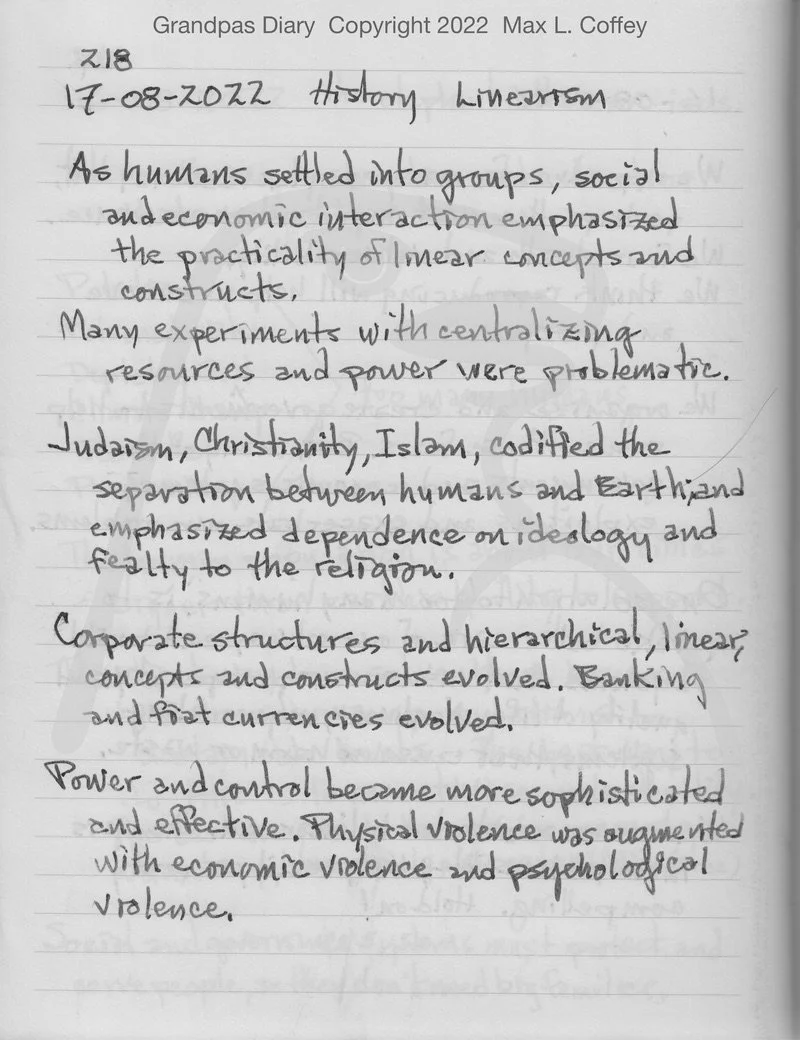 Grandpas Diary Copyright 2022 Max L. Coffey
218
17-08-2022 History Linearism
As humans settled into groups, social
and economic interaction emphasized
the practicality of linear concepts and
constructs.
Many experiments with centralizing
resources and power were problematic.
Judaism, Christianity, Islam, codified the
separation between humans and Earth; and
emphasized dependence on ideology and
fealty to the religion.
Corporate structures and hierarchical, linear,
concepts and constructs evolved. Banking
and fiat currencies evolved.
Power and control became more sophisticated
and effective. Physical violence was augmented
with economic violence and psychological
violence.